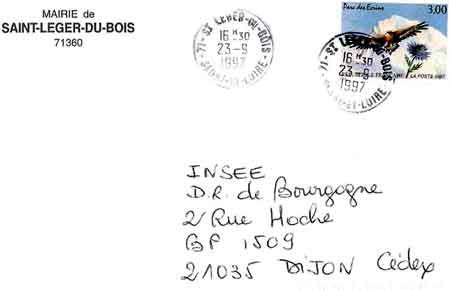 MAIRIE de
SAINT-LEGER-DU-BOIS
71360
71-ST LEGER-DU-BOIS
16H30
23-9
1997
SAONE-ET-LOIRE
Parc des Ecrins
3,00
71-ST LEGER-DU-BOIS
16H30
23-9
1997
SAONE-ET-LOIRE
LA POSTE 1997
INSEE
D.R. de Bourgogne
2 Rue Hoche
BP 1509
21035 DIJON Cédex